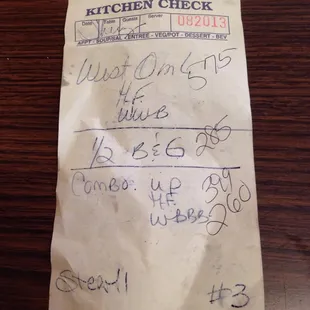 KITCHEN CHECK
Date Table Guests Server 082013
APPT - SOUP/SAL - ENTREE - VEG/POT - DESSERT - BEV
West Om 575
H.F.
WWB
1/2 B&G 285
Combo: UP 399
H.F.
W-BBB 260
#3